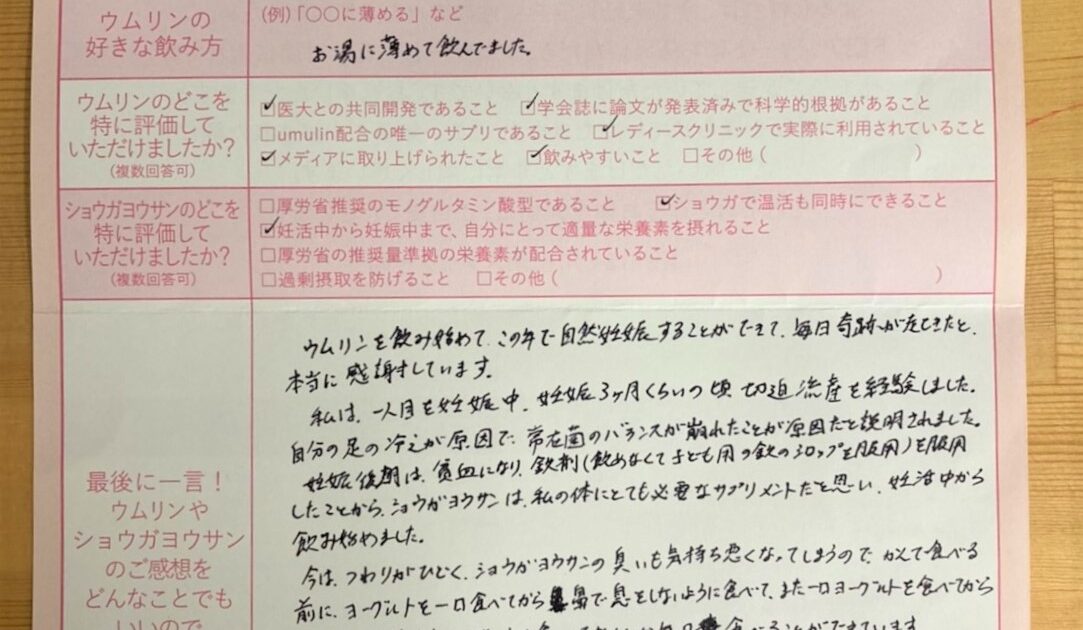 ウムリンの
好きな飲み方
(例)「〇〇に薄める」など
お湯に薄めて飲んでました。
ウムリンのどこを
特に評価して
いただけましたか?
(複数回答可)
☑医大との共同開発であること ☑学会誌に論文が発表済みで科学的根拠があること
□umulin配合の唯一のサプリであること ☑レディースクリニックで実際に利用されていること
☑メディアに取り上げられたこと ☑飲みやすいこと □その他( )
ショウガヨウサンのどこを
特に評価して
いただけましたか?
(複数回答可)
□厚労省推奨のモノグルタミン酸型であること ☑ショウガで温活も同時にできること
☑妊活中から妊娠中まで、自分にとって適量な栄養素を摂れること
□厚労省の推奨量準拠の栄養素が配合されていること
□過剰摂取を防げること □その他( )
最後に一言!
ウムリンや
ショウガヨウサン
のご感想を
どんなことでも
いいので
ウムリンを飲み始めて、この年で自然妊娠することができて、毎日奇跡が起きたと、
本当に感謝しています。
私は、一人目を妊娠中、妊娠3ヶ月くらいの頃 切迫流産を経験しました。
自分の足の冷えが原因で、常在菌のバランスが崩れたことが原因だと説明されました。
妊娠後期は、貧血になり、鉄剤(飲めなくて子ども用の鉄のシロップを服用)を服用
したことから、ショウガヨウサンは、私の体にとても必要なサプリメントだと思い、妊活中から
飲み始めました。
今は、つわりがひどく、ショウガヨウサンの臭いも気持ち悪くなってしまうので、かんで食べる
前に、ヨーグルトを一口食べてから鼻で息をしないように食べて、また一口ヨーグルトを食べてから
食べることができています。